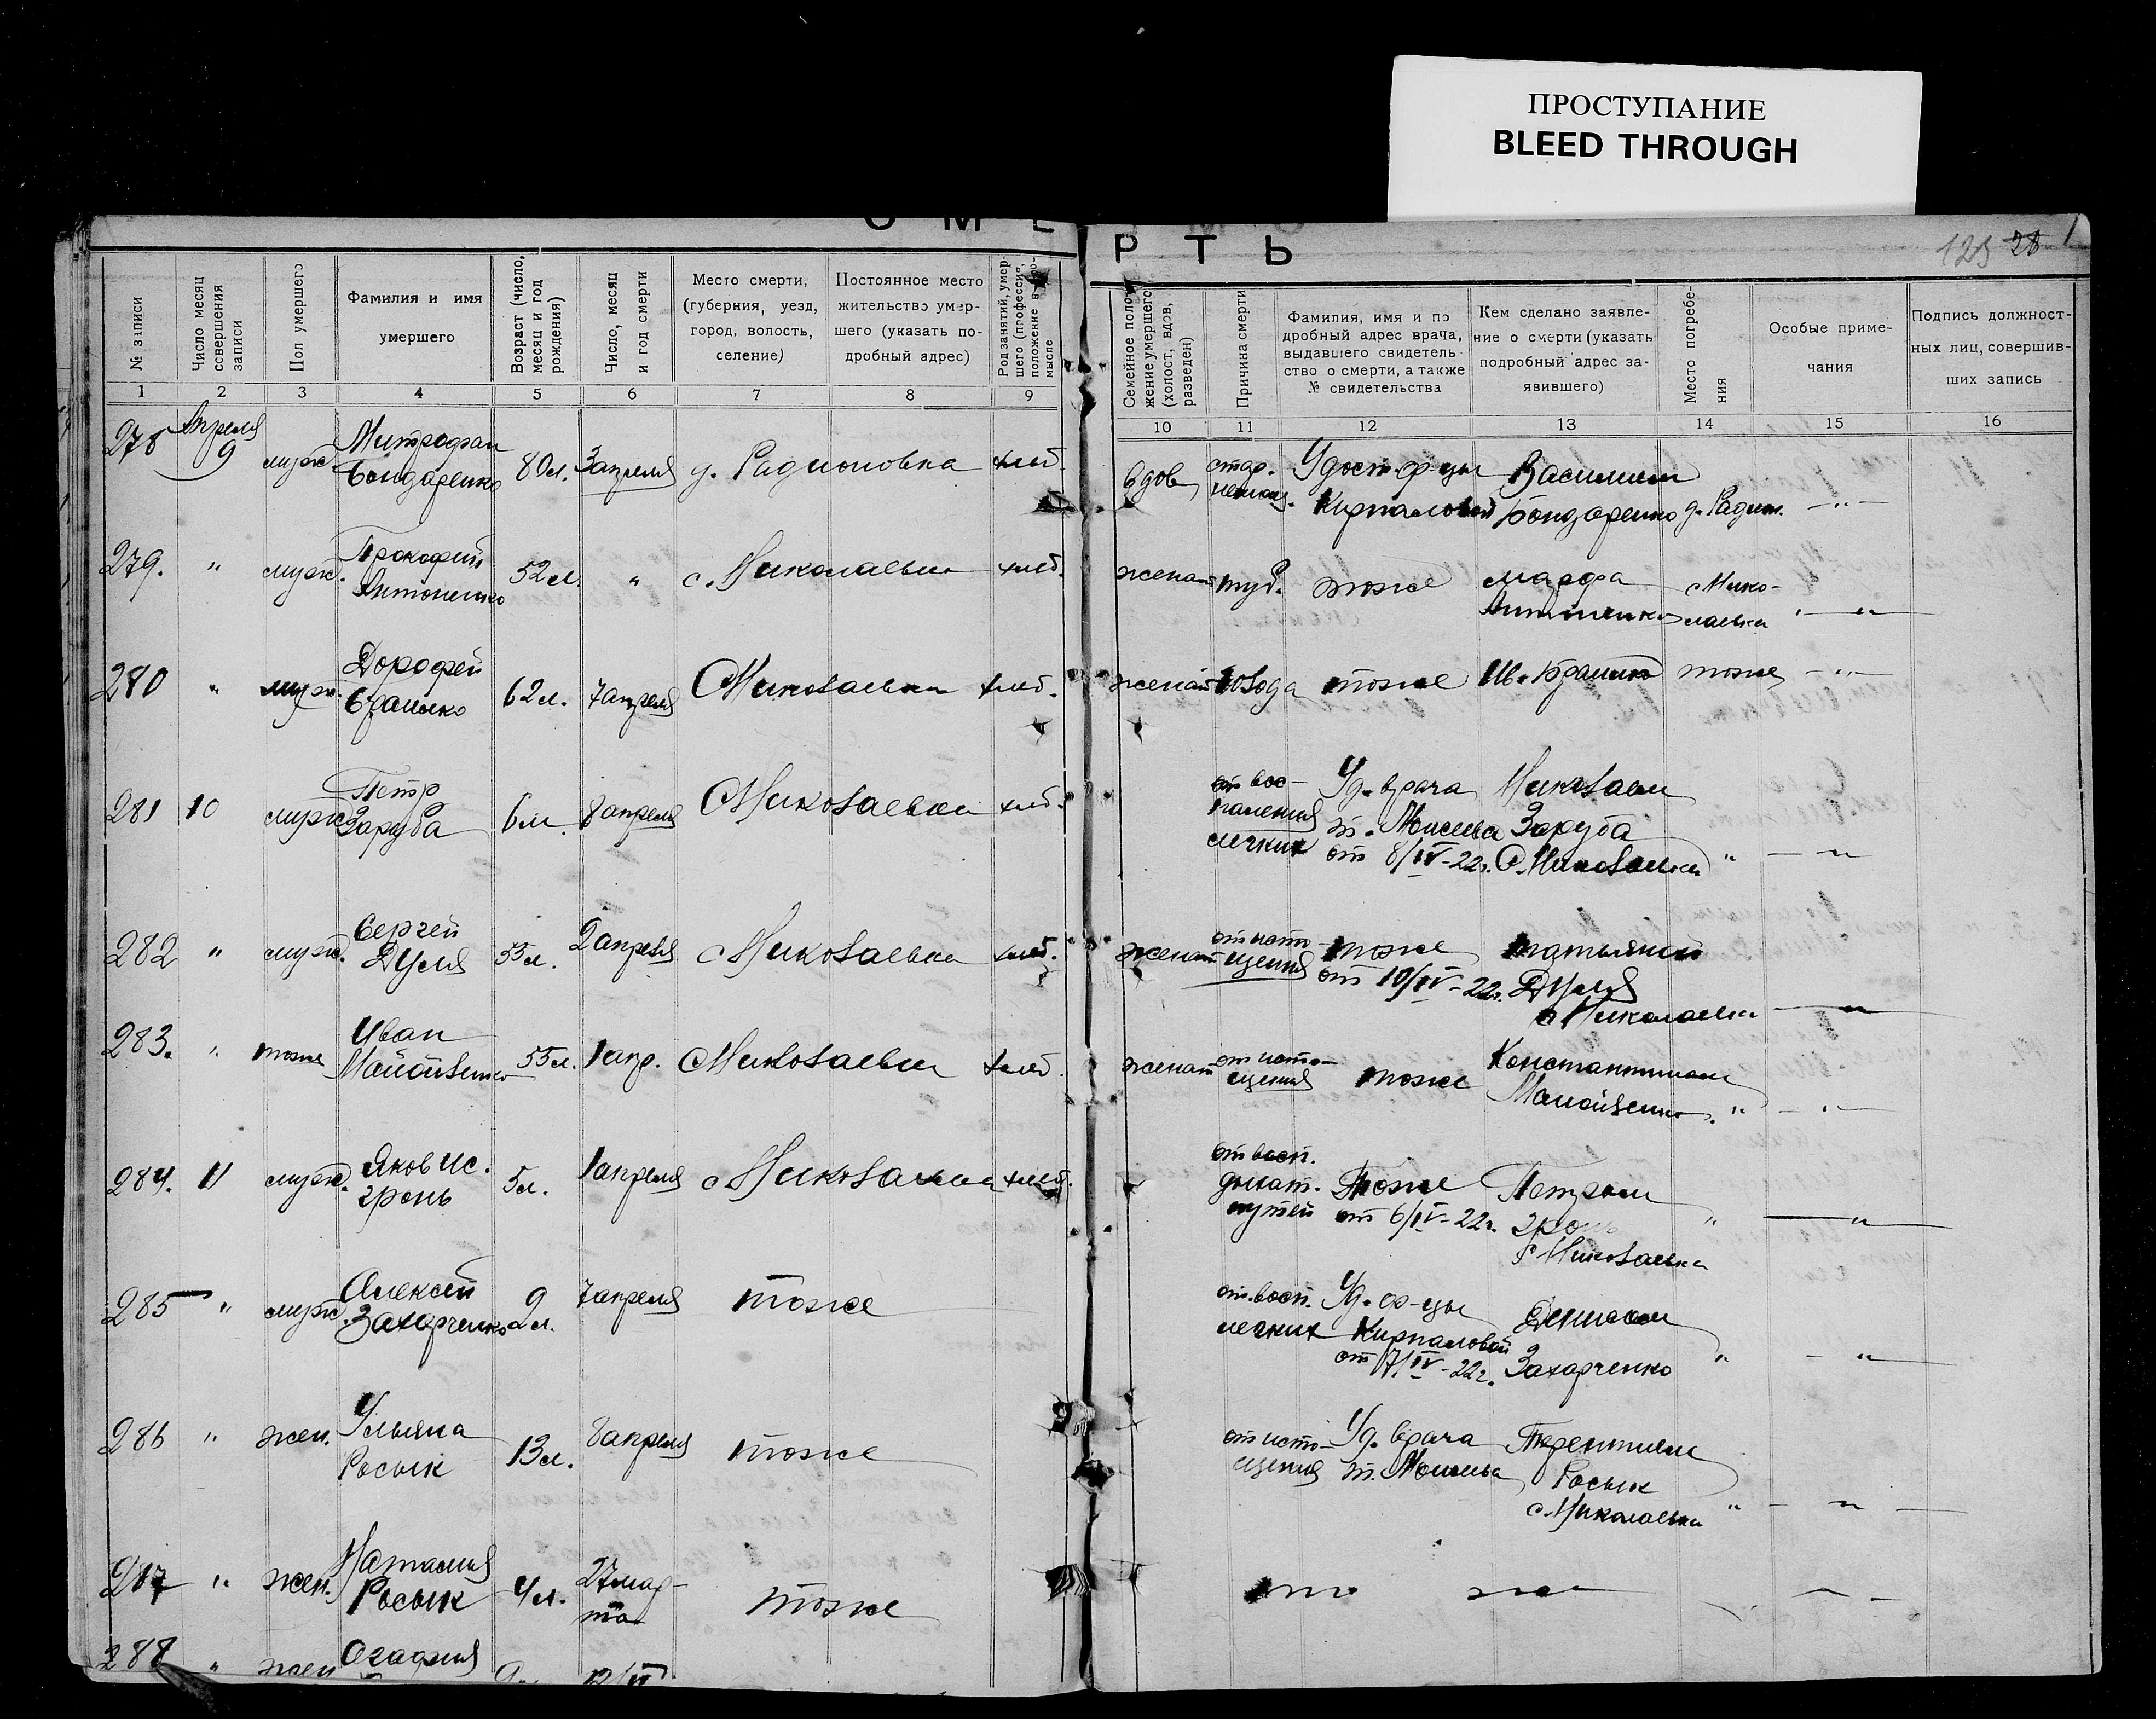 ПРОСТУПАНИЕ
BLEED THROUGH
С М Е Р Т Ь
125 28
№ записи
Число месяц совершения записи
Пол умершего
Фамилия и имя умершего
Возраст (число, месяц и год рождения)
Число, месяц и год смерти
Место смерти, (губерния, уезд, город, волость, селение)
Постоянное место жительство умершего (указать подробный адрес)
Род занятий, умершего (профессия, положение в промысле
Семейное положение умершего (холост, вдов, разведен)
Причина смерти
Фамилия, имя и подробный адрес врача, выдавшего свидетельство о смерти, а также № свидетельства
Кем сделано заявление о смерти (указать подробный адрес заявившего)
Место погребения
Особые примечания
Подпись должностных лиц, совершивших запись
1 2 3 4 5 6 7 8 9 10 11 12 13 14 15 16
278 Апреля 9 муж. Митрофан Бондаренко 80 л. 3 апреля д. Радионовка хлеб. вдов Удост. ф-цы Кирпаловой Василием Бондаренко д. Радион. — " —
279. " муж. Прокофий Антоненко 52 л. " с. Николаевка хлеб. женат туб. тоже Марфа Антоненко с Нико-
лаевка " — "
280 " муж. Дорофей 62 л. 7 апреля с Николаевка хлеб. женат тоже тоже — " —
281 10 муж. Петр Заруба 6 м. 8 апреля с Николаевка хлеб. от вос-
паления легких Уд. врача т. Моисеева от 8/IV-22 г. Николаем Заруба с. Николаевка " — " —
282 " муж. Сергей Дуля 55 л. 2 апреля с Николаевка хлеб. женат от исто-
щения тоже от 10/IV-22 г. Дуля с Николаевка — " —
283. " тоже Иван 55 л. 1 апр. с Николаевка хлеб. женат от исто-
щения тоже Константином " — " —
284. 11 муж. Яков Ис. гронь 5 л. 1 апреля с Николаевка хлеб. от восп. дыхат. путей Тоже от 6/IV-22 г. Петром с Николаевка " — " —
285 " муж. Алексей Захарченко 2 л. 7 апреля тоже от восп. легких Уд. ф-цы Кирпаловой от 7/IV-22 г. Денисом Захарченко " — " —
286 " жен. Ульяна Росык 13 л. 8 апреля тоже от исто-
щения Уд. врача т. Моисеева Терентием Росык с Николаевка " — " —
287 " жен. Наталия Росык 4 л. 27 мар-
та тоже то же
288 " жен Огафия